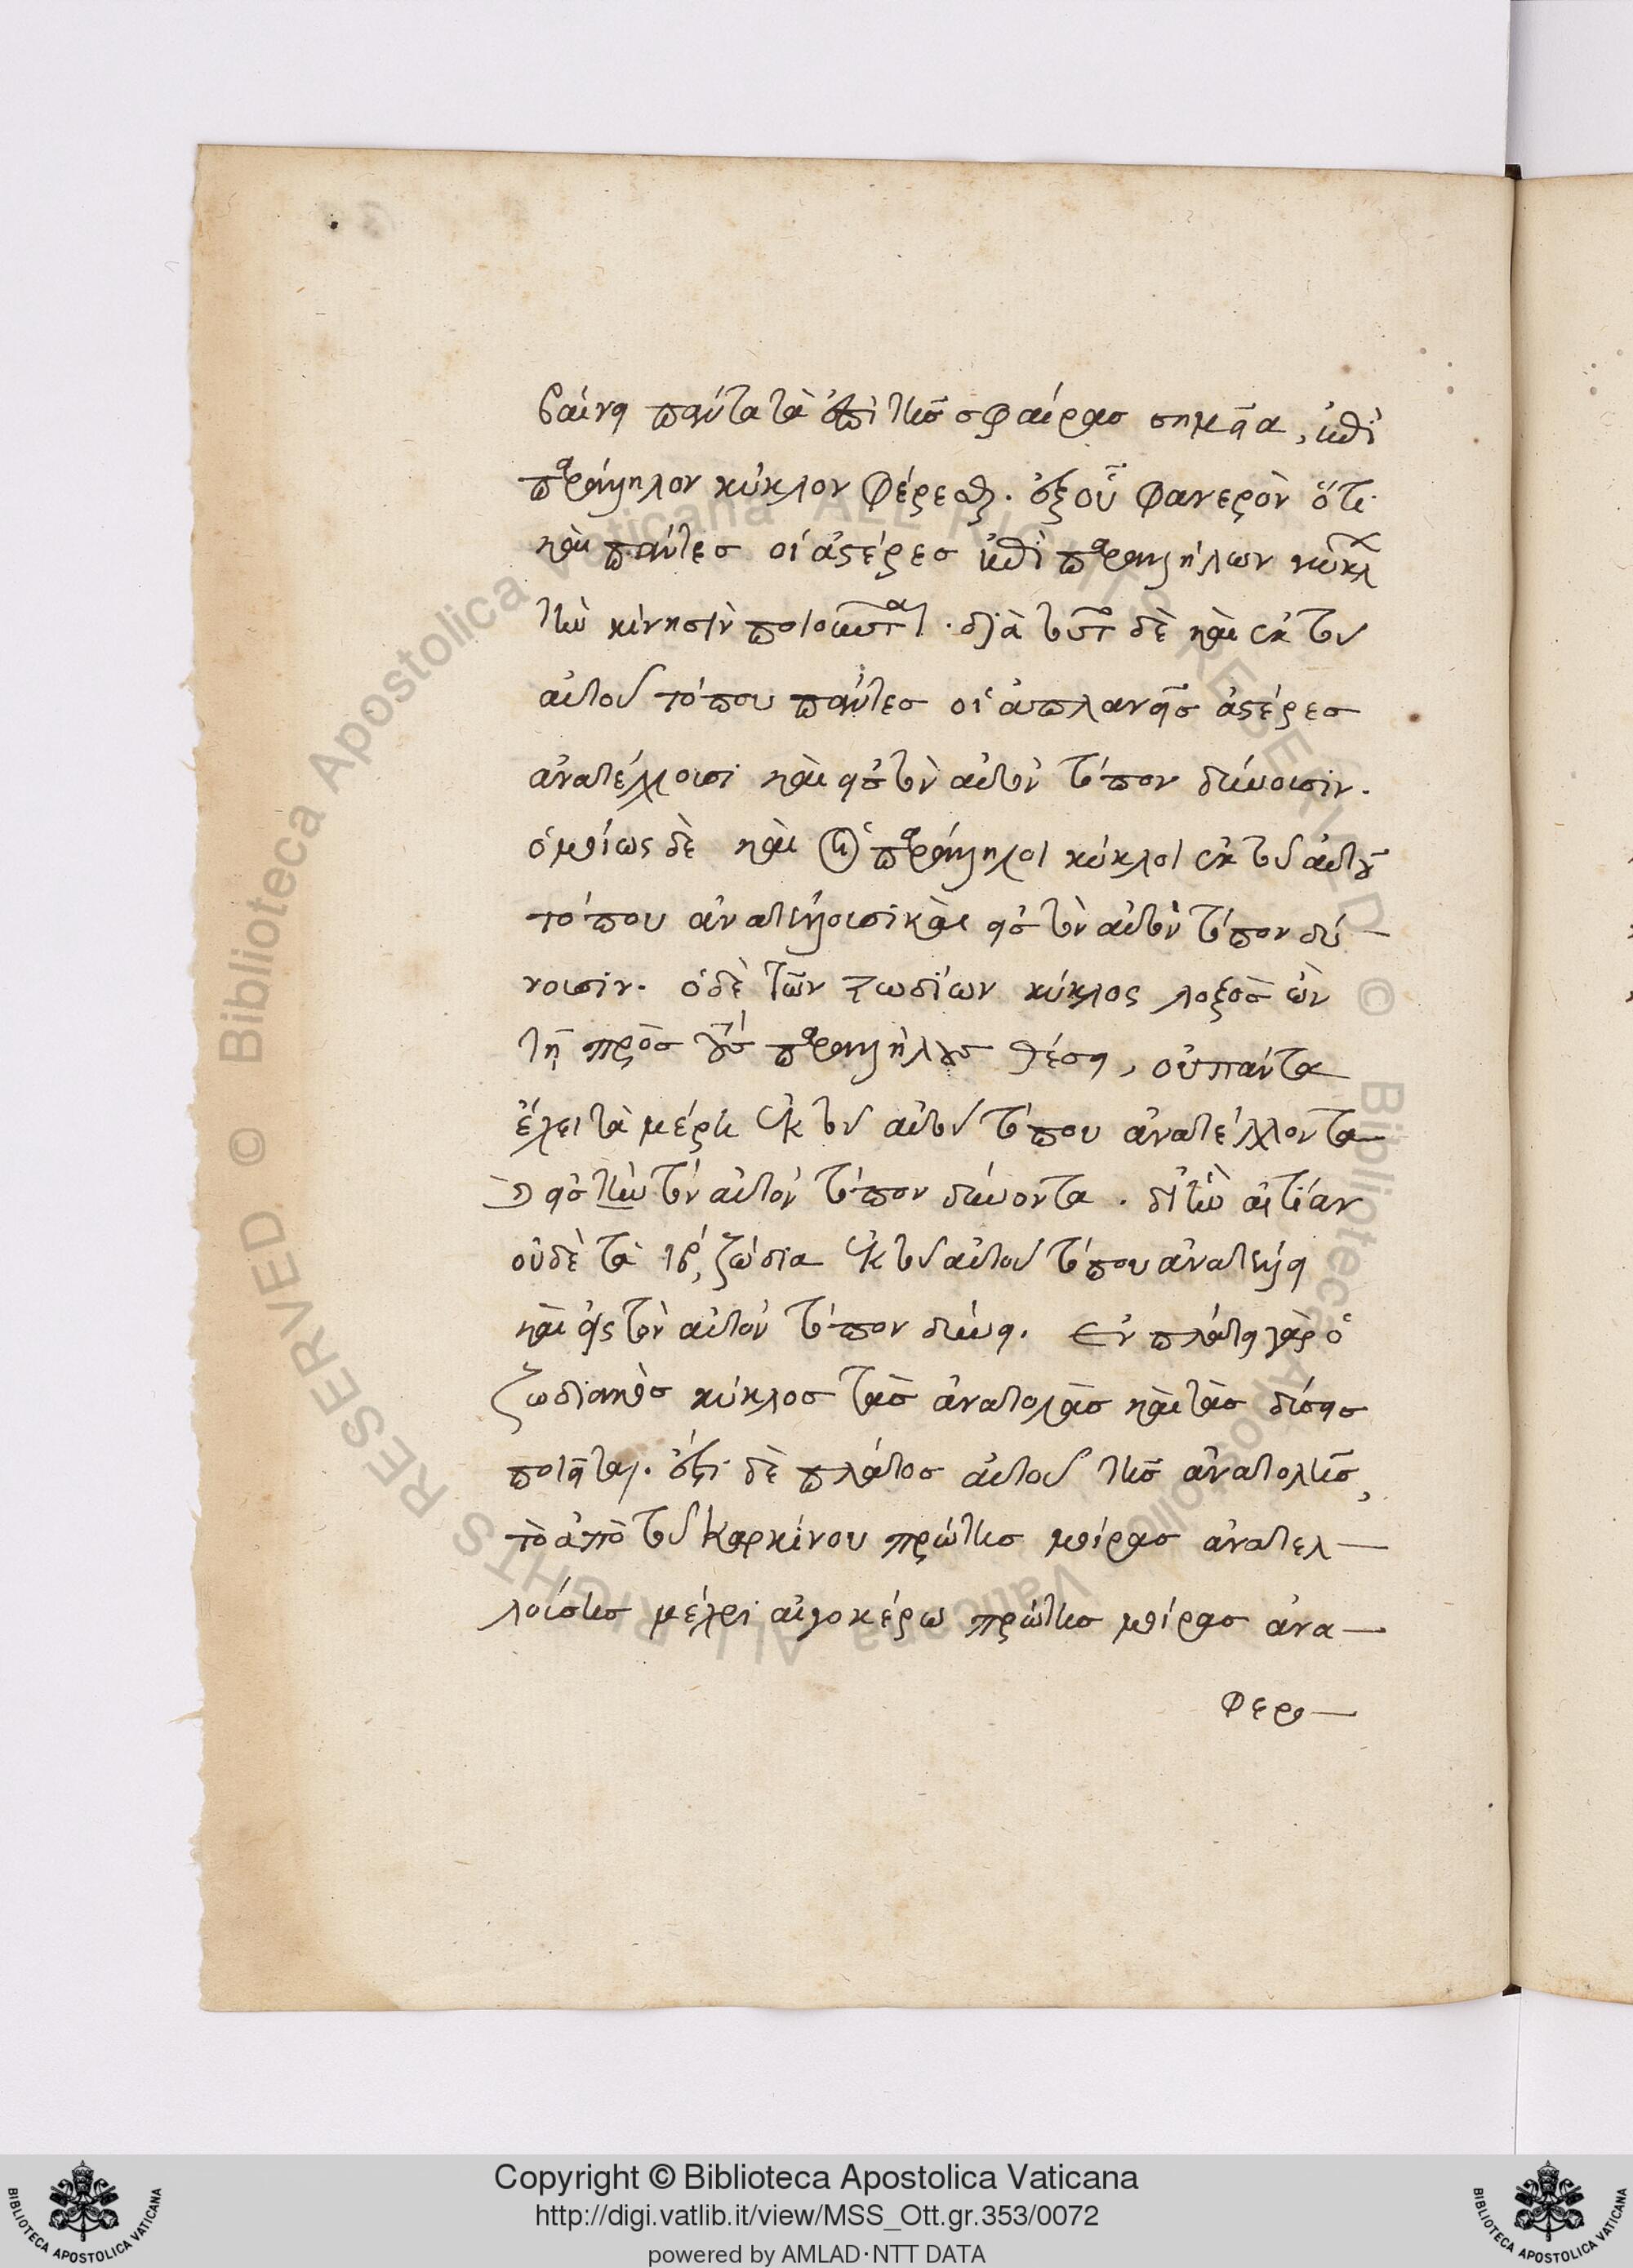 βαίνει πάντα τὰ ἐπὶ τῆς σφαίρας σημεῖα, κατὰ
παράλληλον κύκλον φέρεσθαι. ἐξ οὗ φανερὸν ὅτι
καὶ πάντες οἱ ἀστέρες κατὰ παραλλήλων κύκλ
τὴν κίνησιν ποιοῦνται. διὰ τοῦτο δὲ καὶ ἐκ τοῦ
αὐτοῦ τόπου πάντες οἱ ἀπλανεῖς ἀστέρες
ἀνατέλλουσι καὶ εἰς τὸν αὐτὸν τόπον δύνουσιν.
ὁμοίως δὲ καὶ οἱ παράλληλοι κύκλοι ἐκ τοῦ αὐτοῦ
τόπου ἀνατέλλουσι καὶ εἰς τὸν αὐτὸν τόπον δύ
νουσιν. ὁ δὲ τῶν ζωδίων κύκλος λοξὸς ὢν
τῇ πρὸς τοὺς παραλλήλους θέσει, οὐ πάντα
ἔχει τὰ μέρη ἐκ τοῦ αὐτοῦ τόπου ἀνατέλλοντα
εἰς τὴν τὸν αὐτὸν τόπον δύνοντα. δι' ἣν αἰτίαν
οὐδὲ τὰ ιβ, ζώδια ἐκ τοῦ αὐτοῦ τόπου ἀνατέλλει
καὶ εἰς τὸν αὐτὸν τόπον δύνει. Ἐν πλάτει γὰρ ὁ
ζωδιακὸς κύκλος τὰς ἀνατολὰς καὶ τὰς δύσεις
ποιεῖται. ἔστι δὲ πλάτος αὐτοῦ τῆς ἀνατολῆς,
τὸ ἀπὸ τοῦ Καρκίνου πρώτης μοίρας ἀνατελ
λούσης μέχρι αἰγοκέρω πρώτης μοίρας ἀνα
φερο
Copyright © Biblioteca Apostolica Vaticana
http://digi.vatlib.it/view/MSS_Ott.gr.353/0072
powered by AMLAD·NTT DATA
BIBLIOTECA APOSTOLICA VATICANA
BIBLIOTECA APOSTOLICA VATICANA
© Biblioteca Apostolica Vaticana ALL RIGHTS RESERVED © Biblioteca Apostolica Vaticana ALL RIGHTS RESERVED